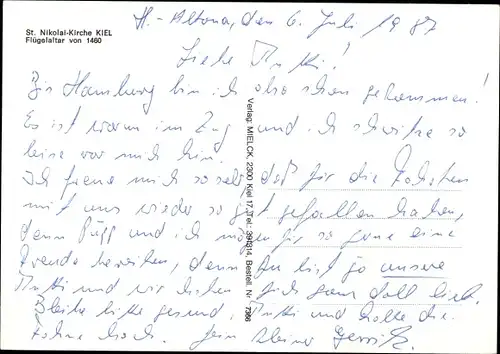 St. Nikolai-Kirche KIEL
Flügelaltar von 1460
H.-Altona, den 6. Juli 1987
Liebe Mutti!
Bis Hamburg bin ich also schon gekommen!
Es ist warm im Zug und ich schwitze so
leise vor mich hin.
Ich freue mich so sehr, daß für die
mit uns wieder so gut gefallen haben,
denn und ich so gerne eine
Freude bereiten, denn Du bist ja unsere
Mutti und wir haben Dich ganz doll lieb.
Bleibe bitte gesund, Mutti und halte die
Ohren hoch. Dein kleiner
Verlag: MIELCK, 2300 Kiel 17, Tel.: 391314, Bestell. Nr. 7366